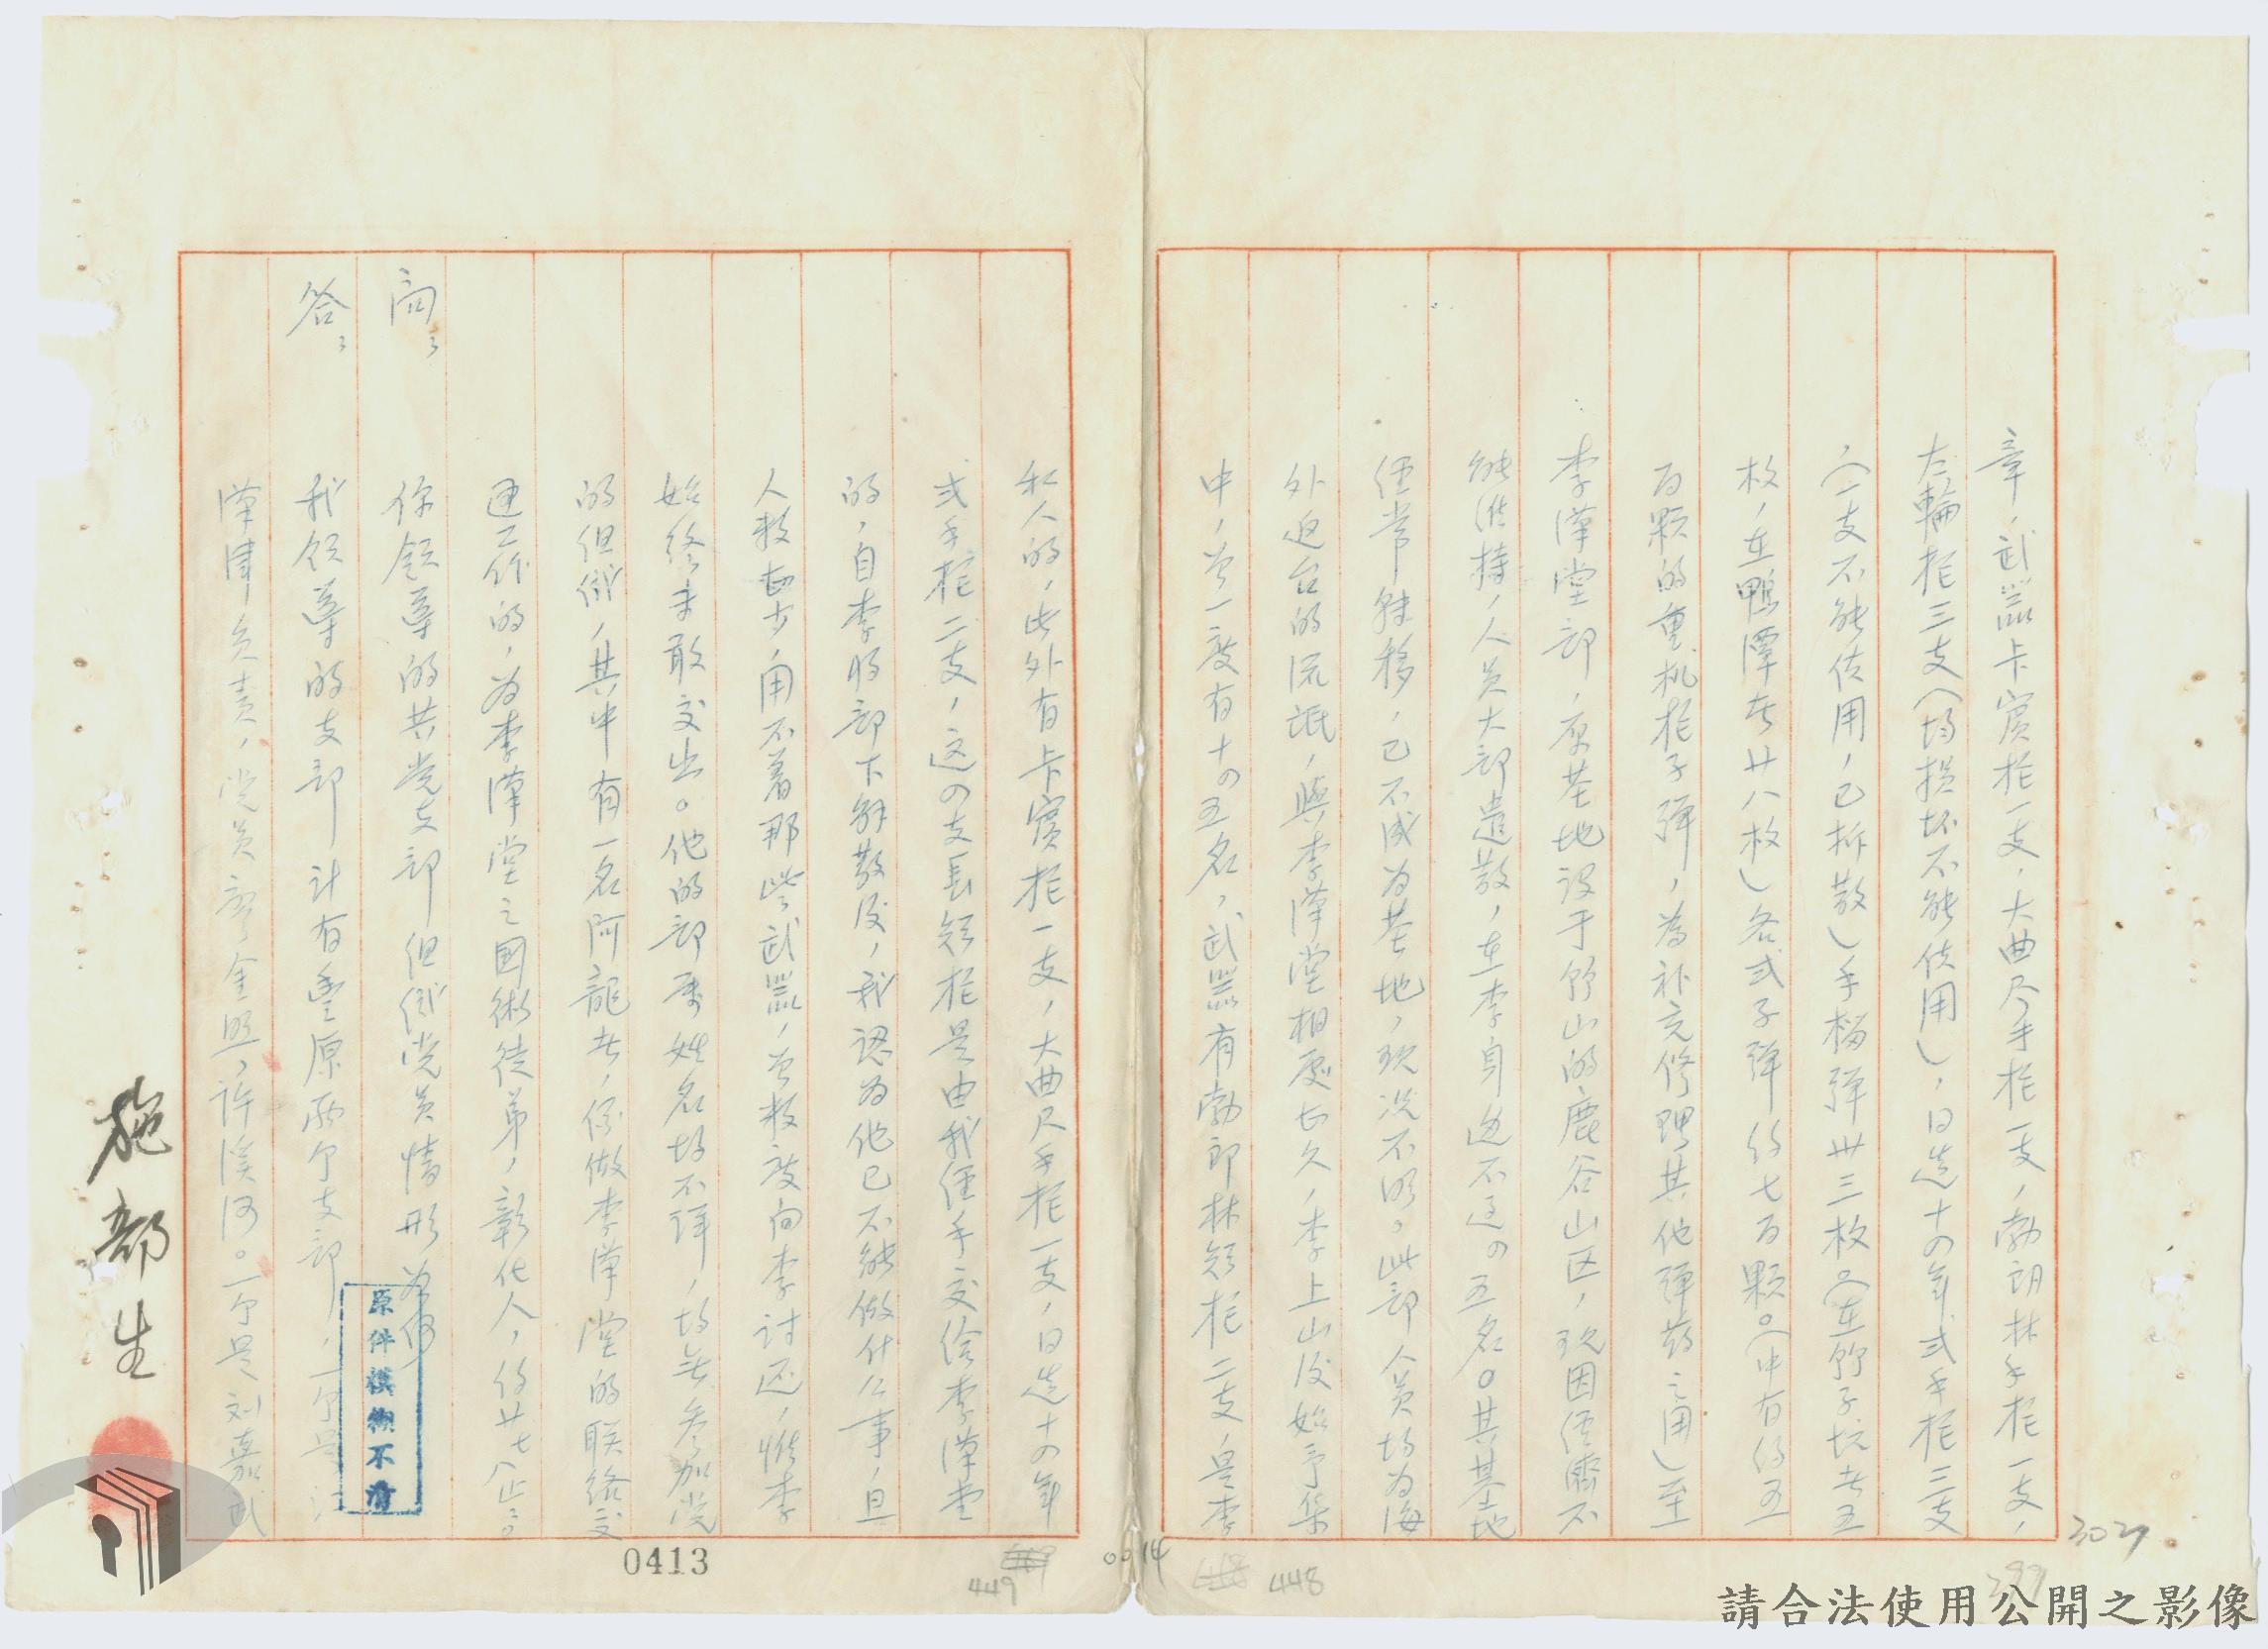 章，武器卡賓枪一支，大曲尺手枪一支，勃朗林手枪一支，
左輪枪三支（均损坏不能使用），日造十四年式手枪三支
，（一支不能使用，已拆散）手榴弹卅三枚。（在竹子坑者五
枚，在鴨潭者廿八枚）各式子弹约七百颗。（中有约五
百颗的重机枪子弹，為补充修理其他弹药之用）至
李漢堂部，原基地设于竹山的鹿谷山区，现因经濟不
能维持，人员大部遣散，在李身边不过四五名。其基地
经常转移，已不成为基地，现况不明。此部人员均为海
外迫台的流氓，與李漢堂相处长久，李上山后始予集
中，曾一度有十四五名，武器有勃郎林短枪二支，是李
私人的，此外有卡賓枪一支，大曲尺手枪一支，日造十四年
式手枪二支，这四支長短枪是由我经手交给李漢堂
的，自李将部下解散后，我認为他已不能做什么事，且
人数甚少，用不着那些武器，曾数度向李讨还，惟李
始终未敢交出。他的部属姓名均不詳，均無參加党
的组織，其中有一名阿龍者，係做李漢堂的联络交
通工作的，为李漢堂之國術徒弟，彰化人，约廿七八止。
問： 你領導的共党支部组織党员情形为何
答： 我领導的支部计有豐原兩个支部，一个是
漢津负责，党员廖金照，许溪河。一个是刘嘉武
施部生
原件模糊不清
0413
449
0014
448
3027
299
請合法使用公開之影像